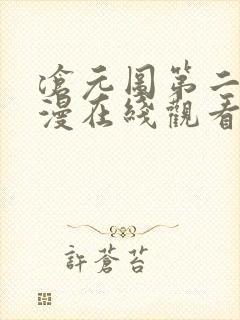 滄元圖第二
漫在綫觀看
許蒼苔